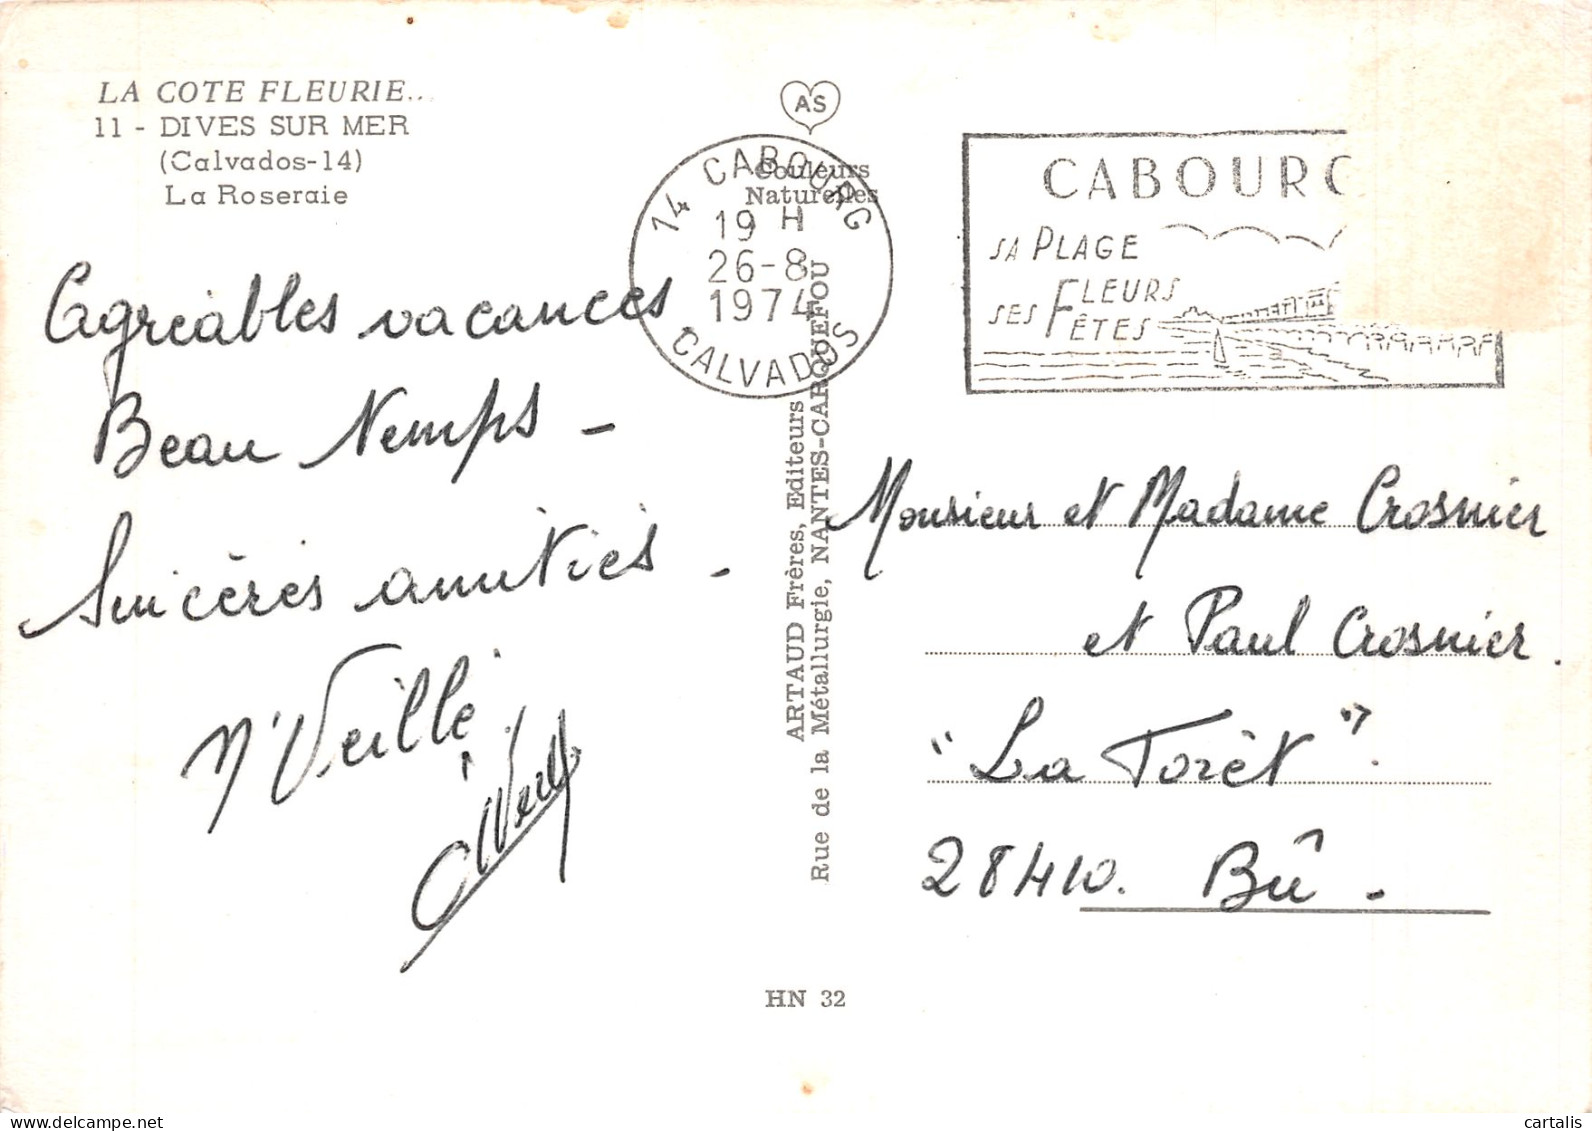 LA COTE FLEURIE...
11 - DIVES SUR MER
(Calvados-14)
La Roseraie
Agréables vacances
Beau temps -
Sincères amitiés -
M' Veillé
AS
Couleurs
Naturelles
14 CABOURG
19 H
26-8
1974
CALVADOS
ARTAUD Frères, Editeurs
Rue de la Métallurgie, NANTES-CARQUEFOU
HN 32
CABOURG
SA PLAGE
SES FLEURS
FÊTES
Monsieur et Madame Crosnier
et Paul Crosnier.
"La Forêt".
28410. Bû -
cartalis